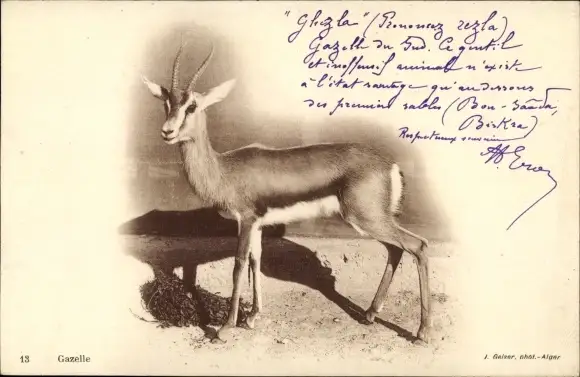 "Ghezla" (Prononcez rezla)
Gazelle du Sud. Ce gentil
et inoffensif animal n'existe
à l'état sauvage qu'au dessous
des premiers sables (Bou-Saâda,
Biskra)
Respectueux souvenir
13 Gazelle
J. Geiser, phot.-Alger